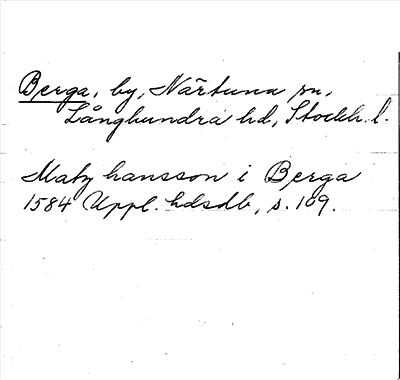 Berga, by, Närtuna sn,
Långhundra hd, Stockh. l.
Maty hansson i Berga
1584 Uppl. hdsdb, s. 109.